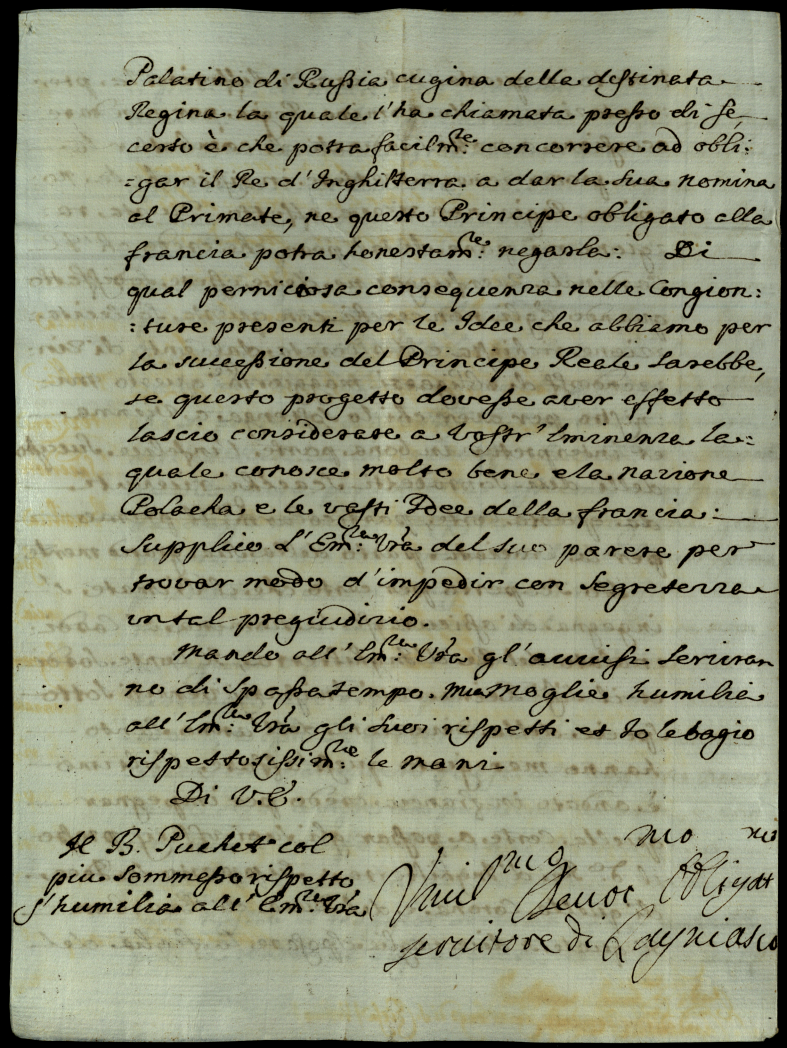 Palatino di Russia cugina della destinata
Regina la quale l'ha chiamata presso di sé
certo è che potra facilm.te concorrere ad obli:
:gar il Re d'Inghilterra a dar la sua nomina
al Primate, ne questo Principe obligato alla
francia potra honestam.te negarla: Di
qual perniciosa consequenza nelle Congion:
:ture presenti per le Idee che abbiamo per
la sucessione del Principe Reale sarebbe,
se questo progetto dovesse aver effetto
lascio considerare a Vostr'Eminenza la:
quale conosce molto bene e la nazione
Polacha e le vasti Idee della francia:
Supplico L'Em.za Vra del suo parere per
trovar modo d'impedir con segretezza
un tal pregiudizio.
Mando all'Em.za Vra gl'auuisi seruiran
no di spassatempo. mia Moglie humilia
all'Em.za Vra gli suoi rispetti et Io le bagio
rispettosissim.te le mani
Di V.E.
Il B. Puchet col
piu sommesso rispetto
s'humilia all'Em.za Vra
Umil mo Deuot mo Obligat mo
seruitore di Lagniasco